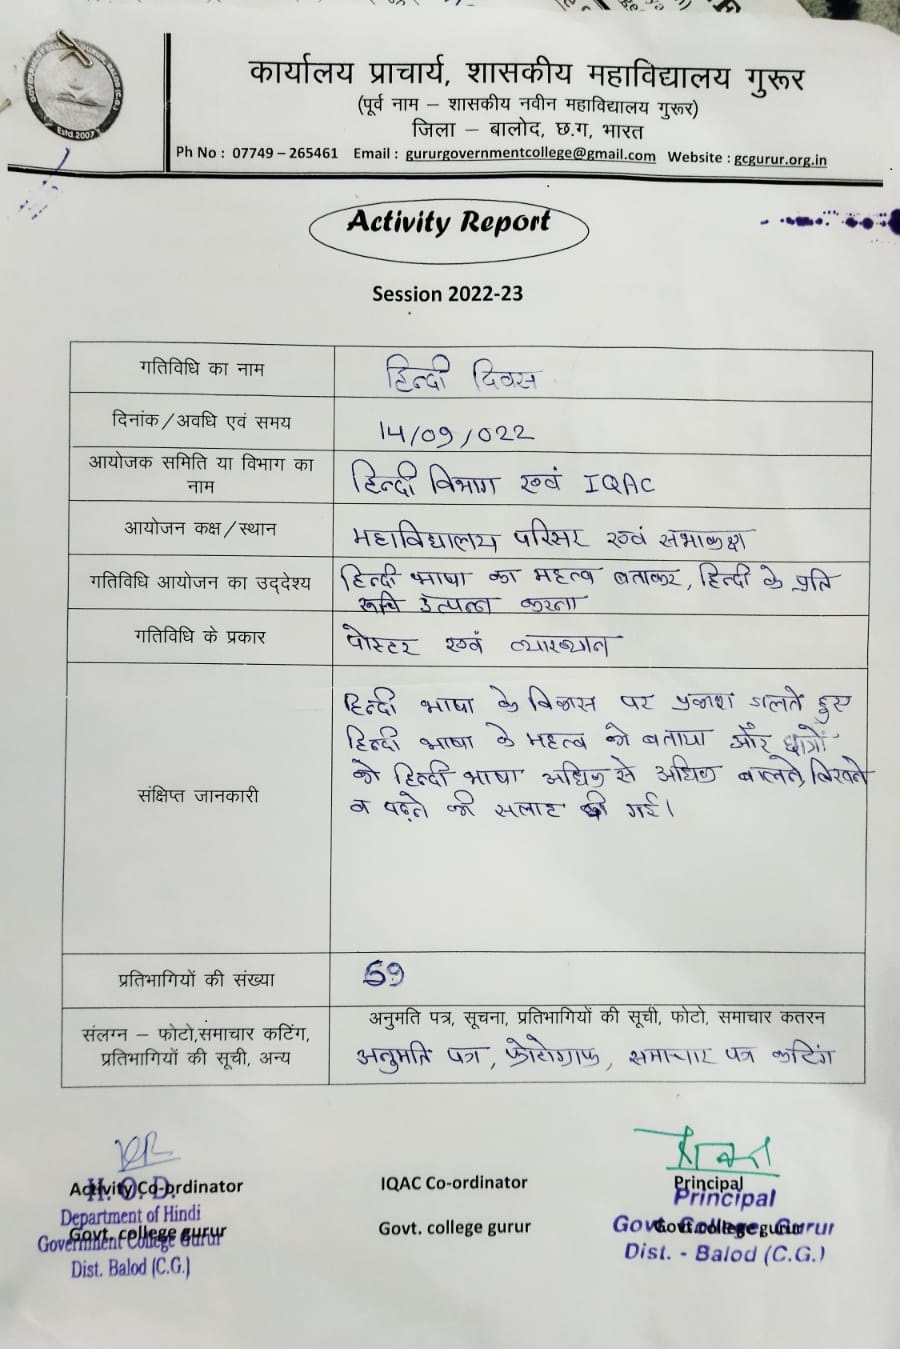 Estd.2007
कार्यालय प्राचार्य, शासकीय महाविद्यालय गुरूर
(पूर्व नाम – शासकीय नवीन महाविद्यालय गुरूर)
जिला – बालोद, छ.ग, भारत
Ph No : 07749 – 265461 Email : gururgovernmentcollege@gmail.com Website : gcgurur.org.in
Activity Report
Session 2022-23
गतिविधि का नाम
हिन्दी दिवस
दिनांक/अवधि एवं समय
14/09/022
आयोजक समिति या विभाग का
नाम
हिन्दी विभाग एवं IQAC
आयोजन कक्ष/स्थान
महाविद्यालय परिसर एवं सभाकक्ष
गतिविधि आयोजन का उद्देश्य
हिन्दी भाषा का महत्व बताकर, हिन्दी के प्रति
रूचि उत्पन्न करना
गतिविधि के प्रकार
पोस्टर एवं व्याख्यान
संक्षिप्त जानकारी
हिन्दी भाषा के विकास पर प्रकाश डालते हुए
हिन्दी भाषा के महत्व को बताया और छात्रों
को हिन्दी भाषा अधिक से अधिक बोलने, लिखने
व पढ़ने की सलाह दी गई।
प्रतिभागियों की संख्या
59
संलग्न – फोटो,समाचार कटिंग,
प्रतिभागियों की सूची, अन्य
अनुमति पत्र, सूचना, प्रतिभागियों की सूची, फोटो, समाचार कतरन
अनुमति पत्र, फोटोग्राफ, समाचार पत्र कटिंग
Activity Co-ordinator
H.O.D.
Department of Hindi
Govt. college gurur
Government College Gurur
Dist. Balod (C.G.)
IQAC Co-ordinator
Govt. college gurur
Principal
Principal
Govt. college gurur
Govt. College, Gurur
Dist. - Balod (C.G.)